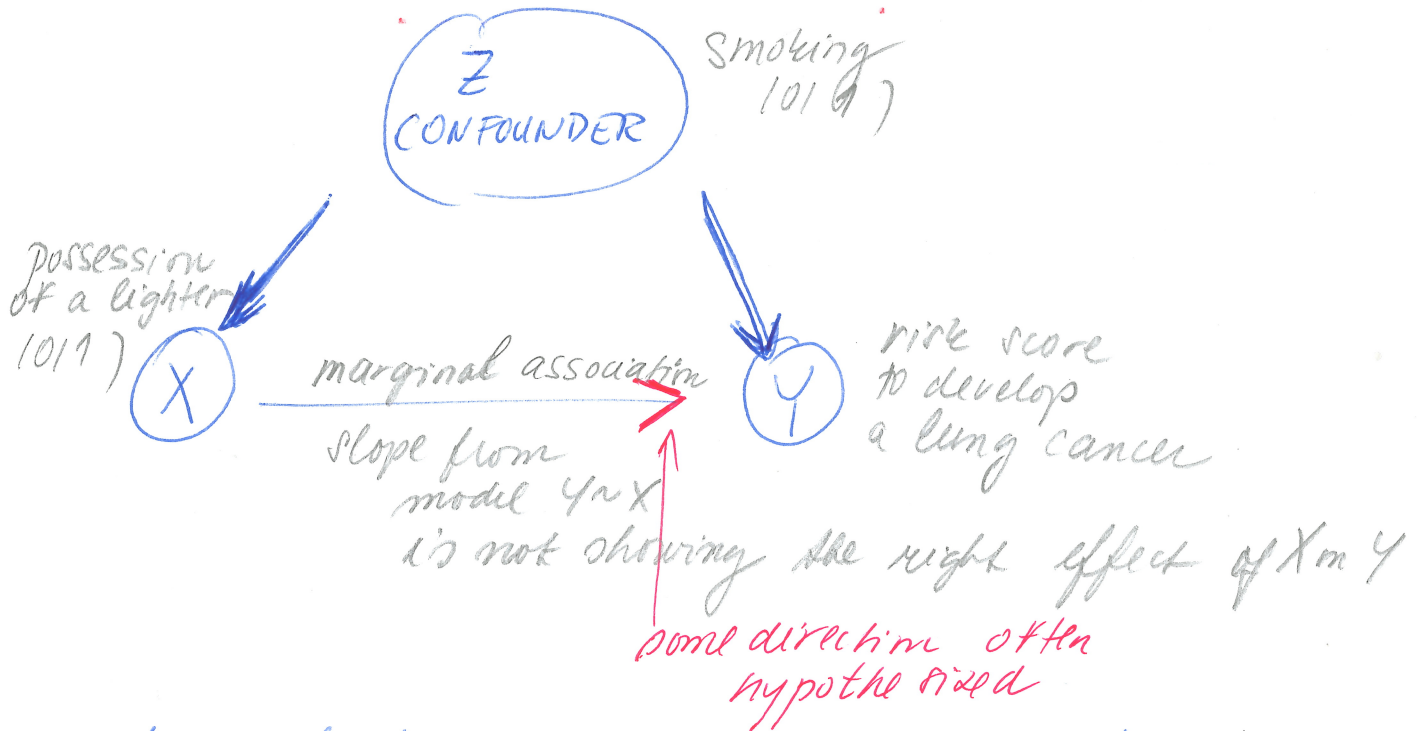 Z
CONFOUNDER
smoking
(0/1)
possession
of a lighter
(0/1)
X
marginal association
Y
risk score
to develop
a lung cancer
slope from
model Y~X
is not showing the right effect of X on Y
some direction often
hypothesized